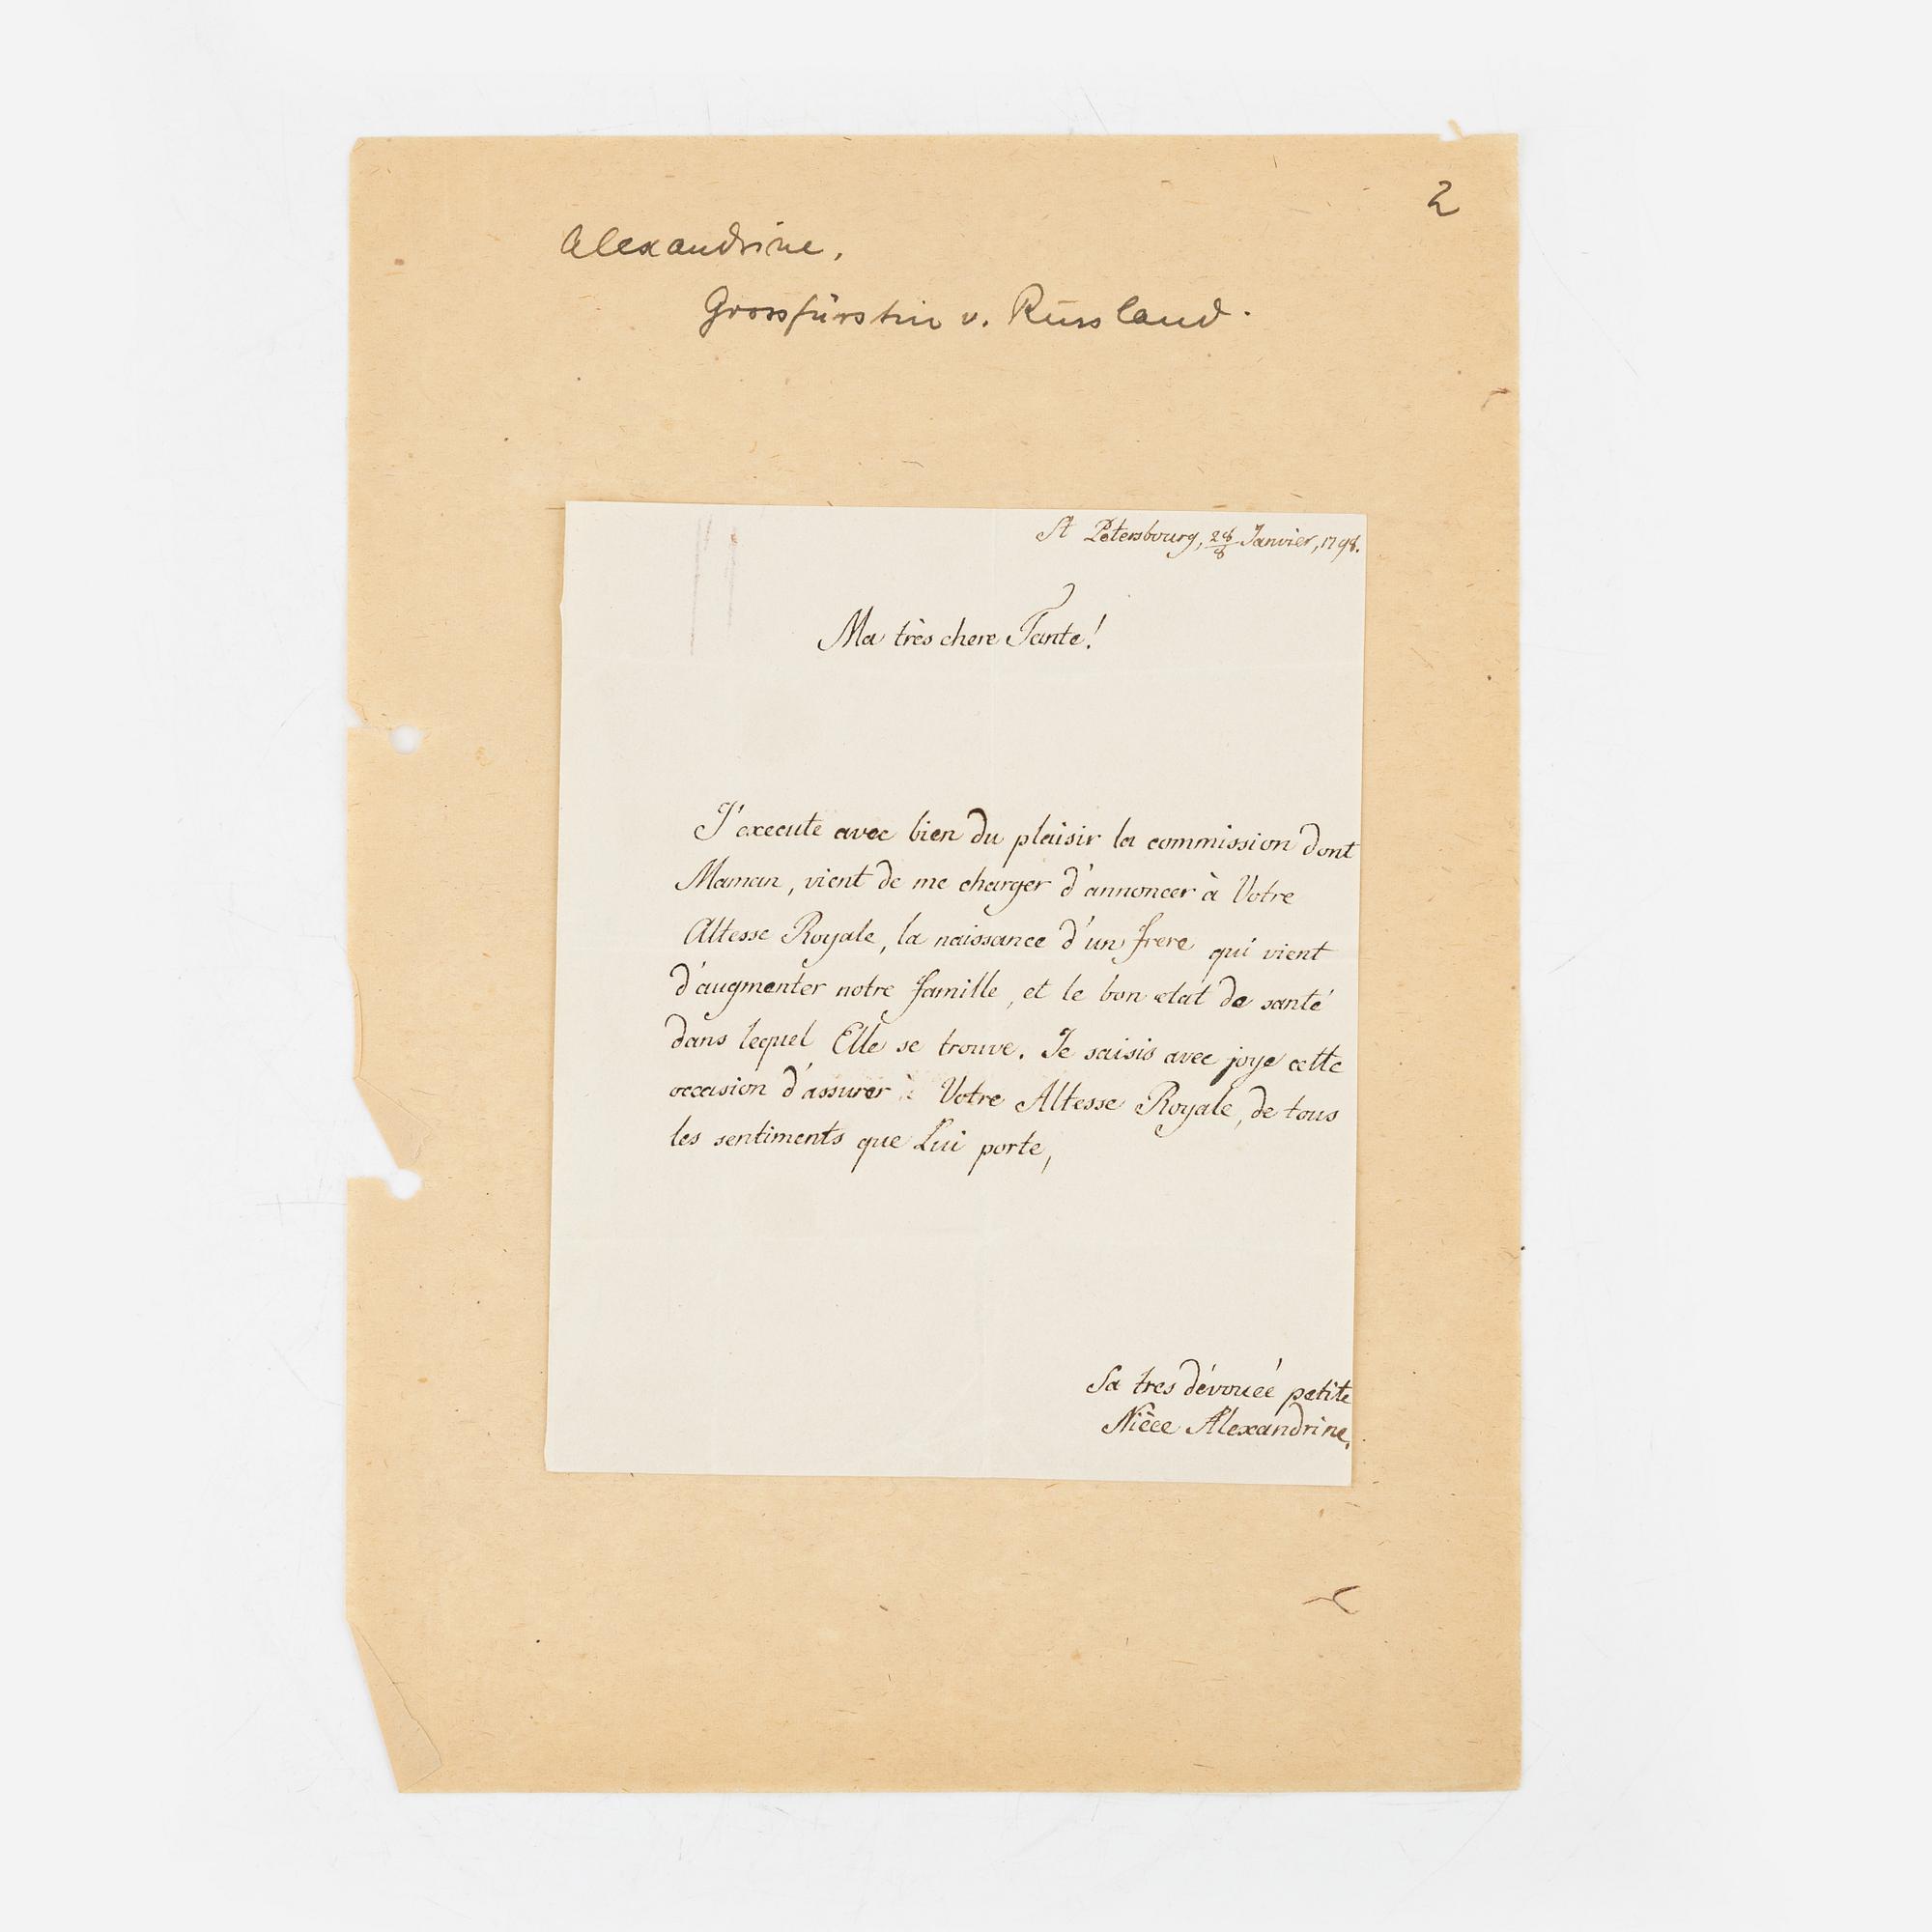 2
Alexandrine.
Grossfürstin v. Russland.
St Petersbourg, 28/8 Janvier, 1798.
Ma très chere Tante!
J'execute avec bien du plaisir la commission dont
Maman, vient de me charger d'annoncer à Votre
Altesse Royale, la naissance d'un frere qui vient
d'augmenter notre famille, et le bon etat de santé
dans lequel Elle se trouve. Je saisis avec joye cette
occasion d'assurer à Votre Altesse Royale, de tous
les sentiments que Lui porte,
Sa tres dévouée petite
Nièce Alexandrine.